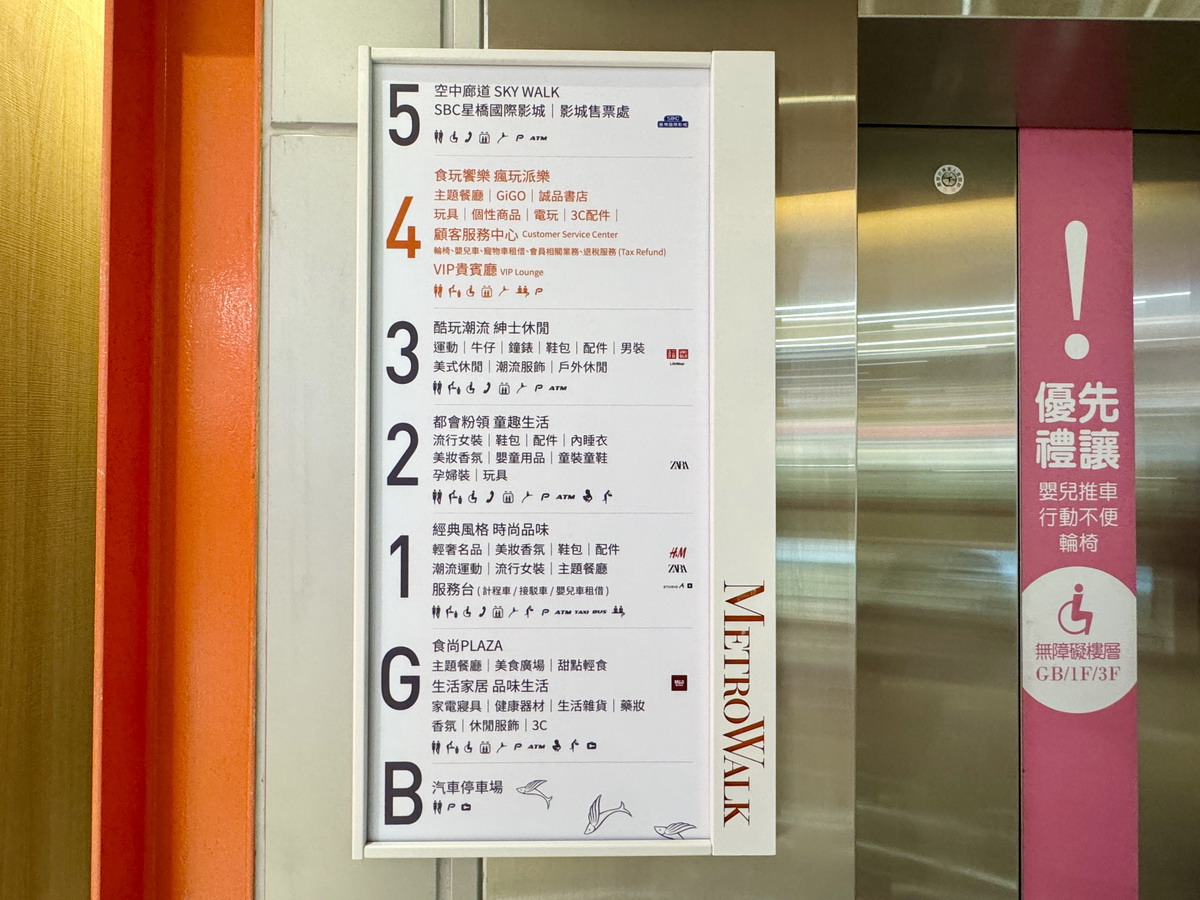 5
空中廊道 SKY WALK
SBC星橋國際影城｜影城售票處
SBC
ATM
4
食玩饗樂 瘋玩派樂
主題餐廳｜GiGO｜誠品書店
玩具｜個性商品｜電玩｜3C配件｜
顧客服務中心 Customer Service Center
輪椅、嬰兒車、寵物車租借、會員相關業務、退稅服務 (Tax Refund)
VIP貴賓廳 VIP Lounge
3
酷玩潮流 紳士休閒
運動｜牛仔｜鐘錶｜鞋包｜配件｜男裝
美式休閒｜潮流服飾｜戶外休閒
ATM
2
都會粉領 童趣生活
流行女裝｜鞋包｜配件｜內睡衣
美妝香氛｜嬰童用品｜童裝童鞋
孕婦裝｜玩具
ZARA
ATM
1
經典風格 時尚品味
輕奢名品｜美妝香氛｜鞋包｜配件
潮流運動｜流行女裝｜主題餐廳
服務台 ( 計程車 / 接駁車 / 嬰兒車租借 )
H&M
ZARA
ATM TAXI BUS
G
食尚PLAZA
主題餐廳｜美食廣場｜甜點輕食
生活家居 品味生活
家電寢具｜健康器材｜生活雜貨｜藥妝
香氛｜休閒服飾｜3C
ATM
B
汽車停車場
METROWALK
!
優先
禮讓
嬰兒推車
行動不便
輪椅
無障礙樓層
GB/1F/3F